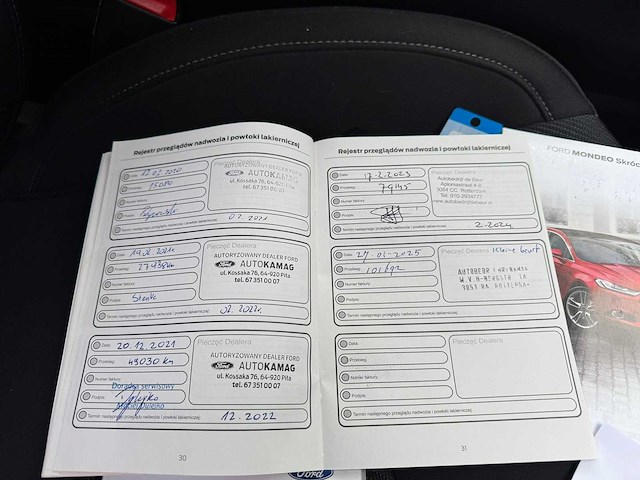 Rejestr przeglądów nadwozia i powłoki lakierniczej
Data:
Pieczęć Dealera
AUTORYZOWANY DEALER FORD
Przebieg:
Ford AUTOKAMAG
ul. Kossaka 76, 64-920 Piła
tel. 67 351 00 07
Numer faktury:
Podpis:
Termin następnego przeglądu nadwozia i powłoki lakierniczej:
02.2021
Data: 19.02.2021r
Pieczęć Dealera
AUTORYZOWANY DEALER FORD
Przebieg: 27938km
Ford AUTOKAMAG
ul. Kossaka 76, 64-920 Piła
tel. 67 351 00 07
Numer faktury:
Podpis:
Termin następnego przeglądu nadwozia i powłoki lakierniczej: 02.2022r.
Data: 20.12.2021
Pieczęć Dealera
AUTORYZOWANY DEALER FORD
Przebieg: 43030 km
Ford AUTOKAMAG
ul. Kossaka 76, 64-920 Piła
tel. 67 351 00 07
Numer faktury:
Doradca serwisowy
Podpis:
Termin następnego przeglądu nadwozia i powłoki lakierniczej: 12.2022
30
Rejestr przeglądów nadwozia i powłoki lakierniczej
Data: 17-2-2023
Pieczęć Dealera
Przebieg: 79145
Autobedrijf de Beur
3084 CC Rotterdam
Numer faktury:
Podpis:
Termin następnego przeglądu nadwozia i powłoki lakierniczej: 2-2024
Data: 27-01-2025
Pieczęć Dealera Kleine beurt
Przebieg: 101192
Numer faktury:
Podpis:
Termin następnego przeglądu nadwozia i powłoki lakierniczej:
Data:
Pieczęć Dealera
Przebieg:
Numer faktury:
Podpis:
Termin następnego przeglądu nadwozia i powłoki lakierniczej:
31
FORD MONDEO Skróc
Ford